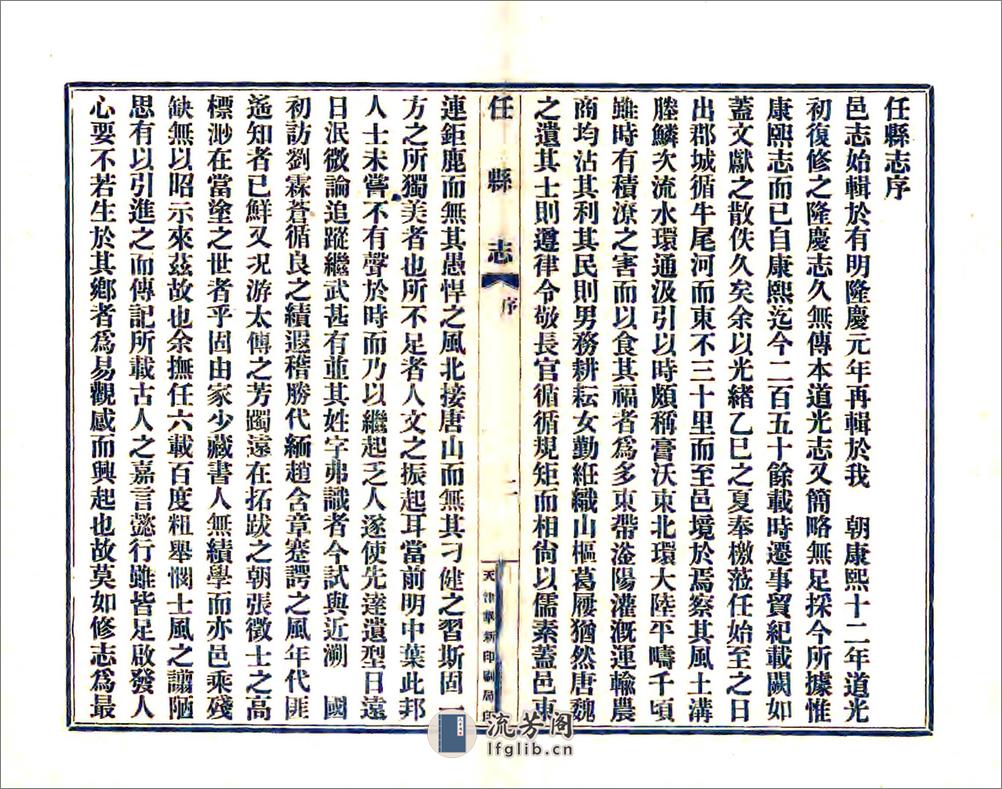 任縣志序
邑志始輯於有明隆慶元年再輯於我　朝康熙十二年道光
初復修之隆慶志久無傳本道光志又簡略無足採今所據惟
康熙志而已自康熙迄今二百五十餘載時遷事貿紀載闕如
蓋文獻之散佚久矣余以光緒乙巳之夏奉檄蒞任始至之日
出郡城循牛尾河而東不三十里而至邑境於焉察其風土溝
塍鱗次流水環通汲引以時頗稱膏沃東北環大陸平疇千頃
雖時有積潦之害而以食其福者爲多東帶滏陽灌溉運輸農
商均沾其利其民則男務耕耘女勤紝織山樞葛屨猶然唐魏
之遺其士則遵律令敬長官循循規矩而相尚以儒素蓋邑東
任縣志　序　二　天津華新印刷局印
連鉅鹿而無其愚悍之風北接唐山而無其刁健之習斯固一
方之所獨美者也所不足者人文之振起耳當前明中葉此邦
人士未嘗不有聲於時而乃以繼起乏人遂使先達遺型日遠
日泯微論追蹤繼武甚有並其姓字弗識者今試與近溯　國
初訪劉霖蒼循良之績遐稽勝代緬趙含章蹇諤之風年代匪
遙知者已鮮又況游太傅之芳躅遠在拓跋之朝張徵士之高
標渺在當塗之世者乎固由家少藏書人無績學而亦邑乘殘
缺無以昭示來茲故也余撫任六載百度粗舉憫士風之譾陋
思有以引進之而傳記所載古人之嘉言懿行雖皆足啟發人
心要不若生於其鄉者爲易觀感而興起也故莫如修志爲最
流芳阁
lfglib.cn